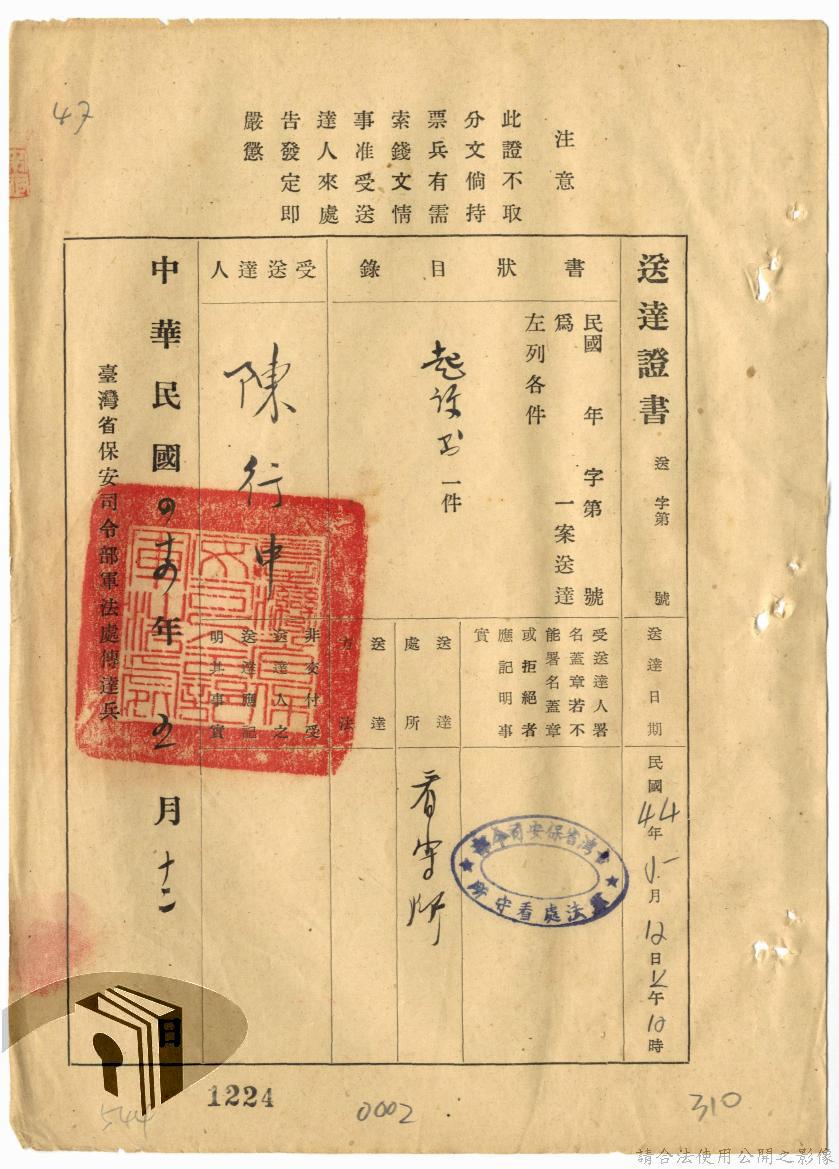 47
注意
此證不取
分文倘持
票兵有需
索錢文情
事准受送
達人來處
告發定即
嚴懲
送達證書
送 字第 號
送達日期
民國44年5月12日上午10時
書狀目錄
民國 年 字第 號
為 一案送達
左列各件
起訴書一件
受送達人署
名蓋章若不
能署名蓋章
或拒絕者
應記明事
實
臺灣省保安司令部
軍法處看守所
送達處所
看守所
送達方法
受送達人
陳行中
非交付受
送達人之
送達應記
明其事實
中華民國四十四年五月十二日
臺灣省保安司令部軍法處傳達兵
1224
544
0002
310
請合法使用公開之影像